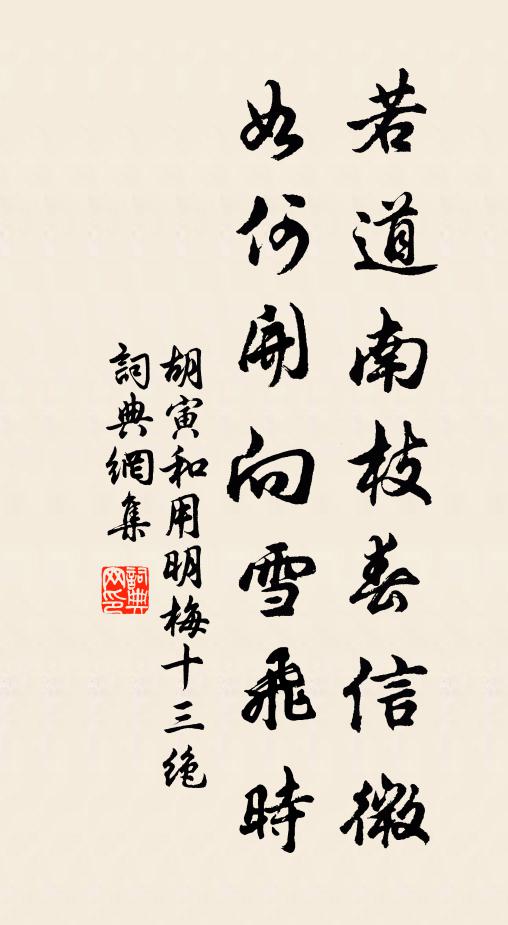 若道南枝春信微
如何開向雪飛時
胡寅和用明梅十三绝
詞典網集
詞典
网印